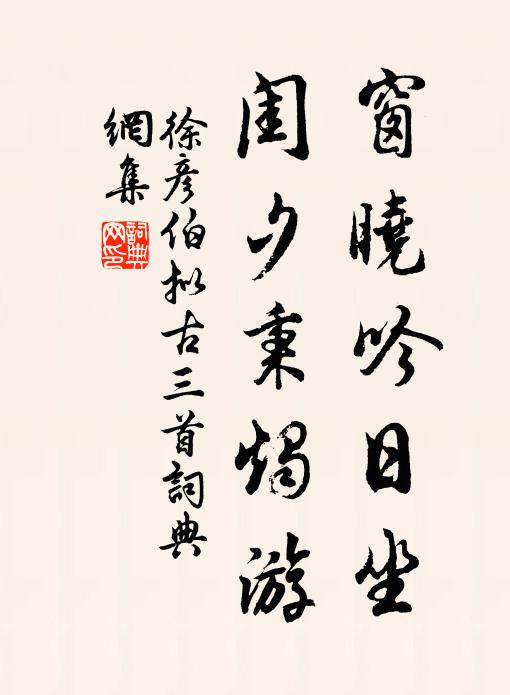 窗曉吟日坐
閨夕秉燭游
徐彦伯拟古三首詞典
網集
詞典网印